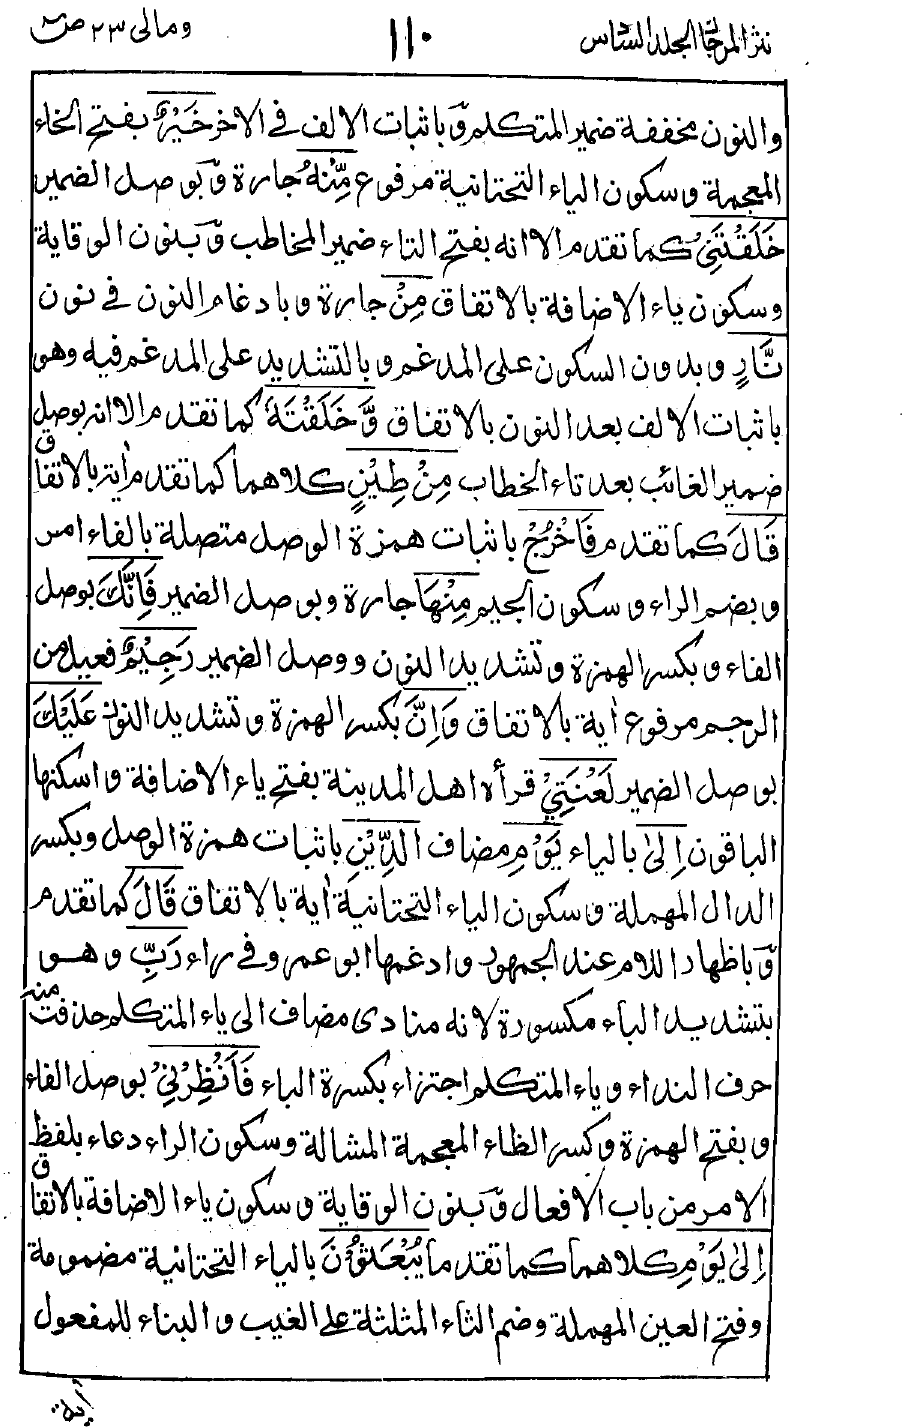 نثر المرجان المجلد السادس ١١٠ ومالی ٢٣ ص
والنون مخففة ضمير المتكلم وَّباثبات الالف فی الاٰخر خَيْرٌ بفتح الخاء
المعجمة وسكون الياء التحتانية مرفوع مِّنْهُ جارة وَّبوصل الضمير
خَلَقْتَنِيْ كما تقدم الا انه بفتح التاء ضمير المخاطب وَّبنون الوقاية
وسكون ياء الاضافة بالاتفاق مِنْ جارة وبادغام النون فی نون
نَّارٍ وبدون السكون علی المدغم وبالتشديد علی المدغم فيه وهو
باثبات الالف بعد النون بالاتفاق وَّخَلَقْتَهٗ كما تقدم الا انه بوصل
ضمير الغائب بعد تاء الخطاب مِنْ طِيْنٍ كلاهما كما تقدم اٰية بالاتفاق
قَالَ كما تقدم فَاخْرُجْ باثبات همزة الوصل متصلة بالفاء امر
وبضم الراء وسكون الجيم مِنْهَا جارة وبوصل الضمير فَاِنَّكَ بوصل
الفاء وبكسر الهمزة وتشديد النون ووصل الضمير رَجِيْمٌ فعيل من
الرجم مرفوع اٰية بالاتفاق وَاِنَّ بكسر الهمزة وتشديد النون عَلَيْكَ
بوصل الضمير لَعْنَتِيْ قرأه اهل المدينة بفتح ياء الاضافة واسكنها
الباقون اِلٰی بالياء يَوْمِ مضاف الدِّيْنِ باثبات همزة الوصل وبكسر
الدال المهملة وسكون الياء التحتانية اٰية بالاتفاق قَالَ كما تقدم
وَّباظهار اللام عند الجمهور وادغمها ابو عمرو فی راء رَبِّ وهو
بتشديد الباء مكسورة لانه منادی مضاف الی ياء المتكلم حذفت منه
حرف النداء وياء المتكلم اجتزاء بكسرة الباء فَاَنْظِرْنِيْ بوصل الفاء
وبفتح الهمزة وكسر الظاء المعجمة المشالة وسكون الراء دعاء بلفظ
الامر من باب الافعال وَّبنون الوقاية وسكون ياء الاضافة بالاتفاق
اِلٰی يَوْمِ كلاهما كما تقدما يُبْعَثُوْنَ بالياء التحتانية مضمومة
وفتح العين المهملة وضم الثاء المثلثة علی الغيب والبناء للمفعول
اٰية